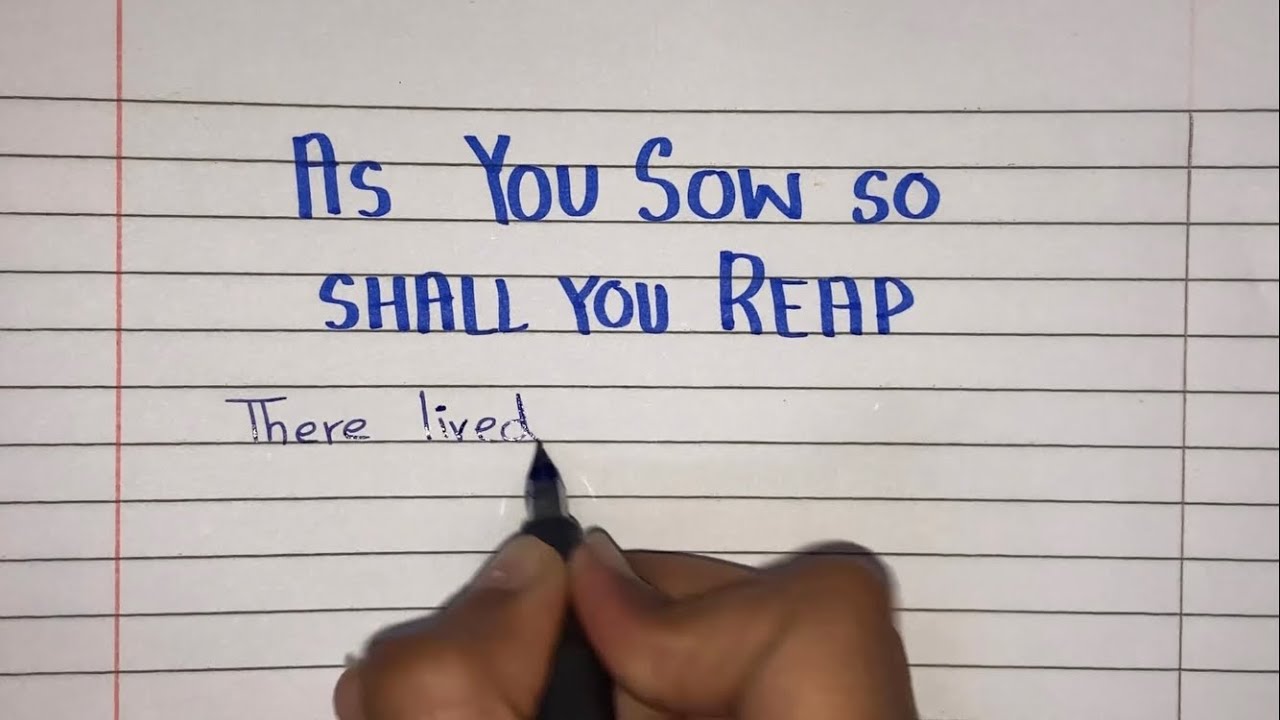 As You Sow so
SHALL YOU REAP
There lived